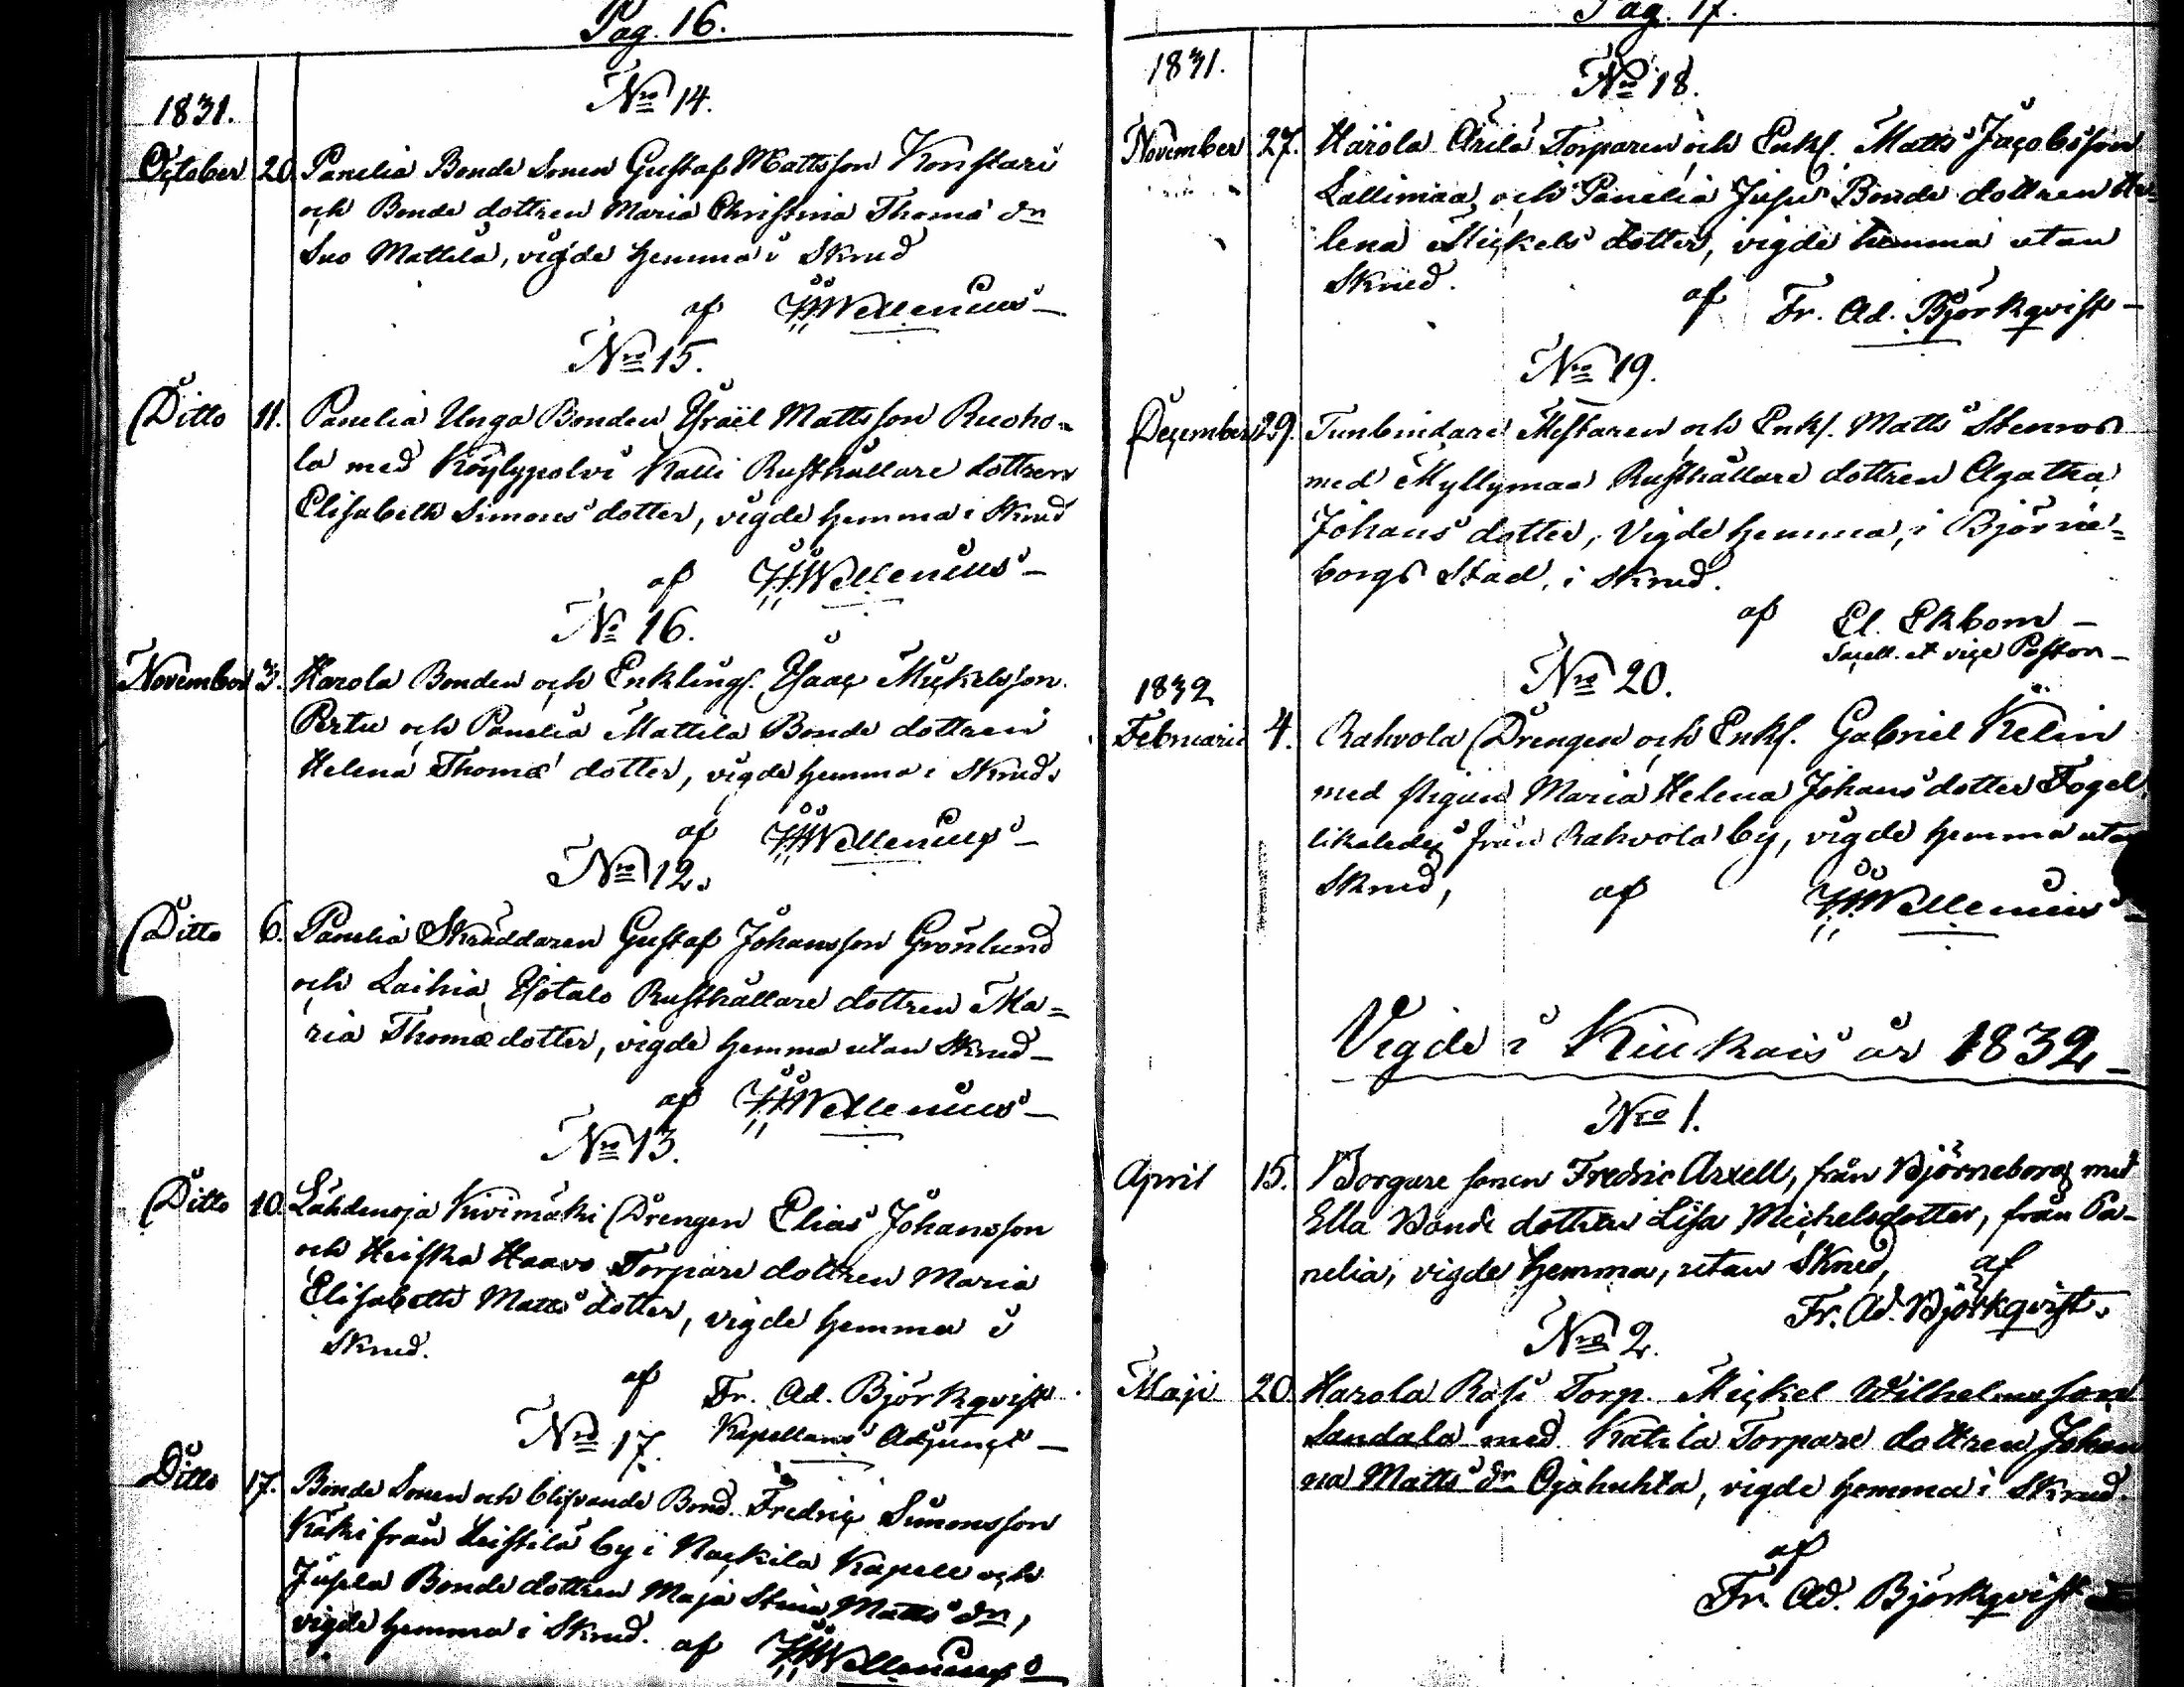 Pag. 16.
1831.
Nro 14.
October 20. Panelia Bonde Sonen Gustaf Mattsson Konstari
och Bonde dottren Maria Christina Thomæ dr
Suo Mattila, vigde hemma i Skrud
af HHWellenius
Nro 15.
Ditto 11. Panelia Unga Bonden Ysraël Mattsson Ruoho=
la med Köylypolvi Kalli Rusthållare dottren
Elisabeth Simons dotter, vigde hemma i Skrud
af HHWellenius
No 16.
November 3. Harola Bonden och Enklingn Ysaac Mickelsson
Pertu och Panelia Mattila Bonde dottren
Helena Thomæ dotter, vigde hemma i Skrud.
af HHWellenius
Nro 12.
Ditto 6. Panelia Skräddaren Gustaf Johansson Grönlund
och Laihia Ysotalo Rusthållare dottren Ma=
ria Thomæ dotter, vigde hemma utan Skrud
af HHWellenius
Nro 13.
Ditto 10. Lähdenoja Kivimäki Drengen Elias Johansson
och Heiska Haavo Torpare dottren Maria
Elisabeth Matts dotter, vigde hemma i
Skrud.
af Fr. Ad. Björkqvist
Kapellans Adjunct
Nro 17.
Ditto 17. Bonde Sonen och blifvande Bond. Fredric Simonsson
Käki från Leistilä by i Nackila Kapell och
Jusela Bonde dottren Maja Stina Matts dr,
vigde hemma i Skrud. af HHWellenius
Pag. 17.
1831.
Nro 18.
November 27. Harola Torparen och Enkl. Matts Jacobsson
Lallimaa, och Panelia Juse Bonde dottren He=
lena Mickels dotter, vigde hemma utan
Skrud.
af Fr. Ad. Björkqvist
Nro 19.
December 29. Tunbindare Mestaren och Enkl. Matts Stenros
med Myllymaa Rusthållare dottren Agatha
Johans dotter, Vigde hemma, i Björne=
borgs Stad, i Skrud.
af El. Ekbom
Sacell. et vice Pastor
Nro 20.
1832
Februarii 4. Rahvola Drengen och Enkl. Gabriel Kelin
med pigan Maria Helena Johans dotter Fogel,
likaledes från Rahvola by, vigde hemma utan
Skrud, af HHWellenius
Vigde i Kiukais år 1832
Nro 1.
April 15. Borgare sonen Fredric Axell, från Björneborg med
Ella Bonde dottren Lisa Michelsdotter, från Pa-
nelia, vigde hemma, utan Skrud, af
Fr. Ad. Björkqvist.
Nro 2.
Maji 20. Harola Rasi Torp. Mickel Wilhelmsson
Sandala med Katila Torpare dottren Johan
na Matts dr Ojahuhta, vigde hemma i Skrud.
af
Fr. Ad. Björkqvist